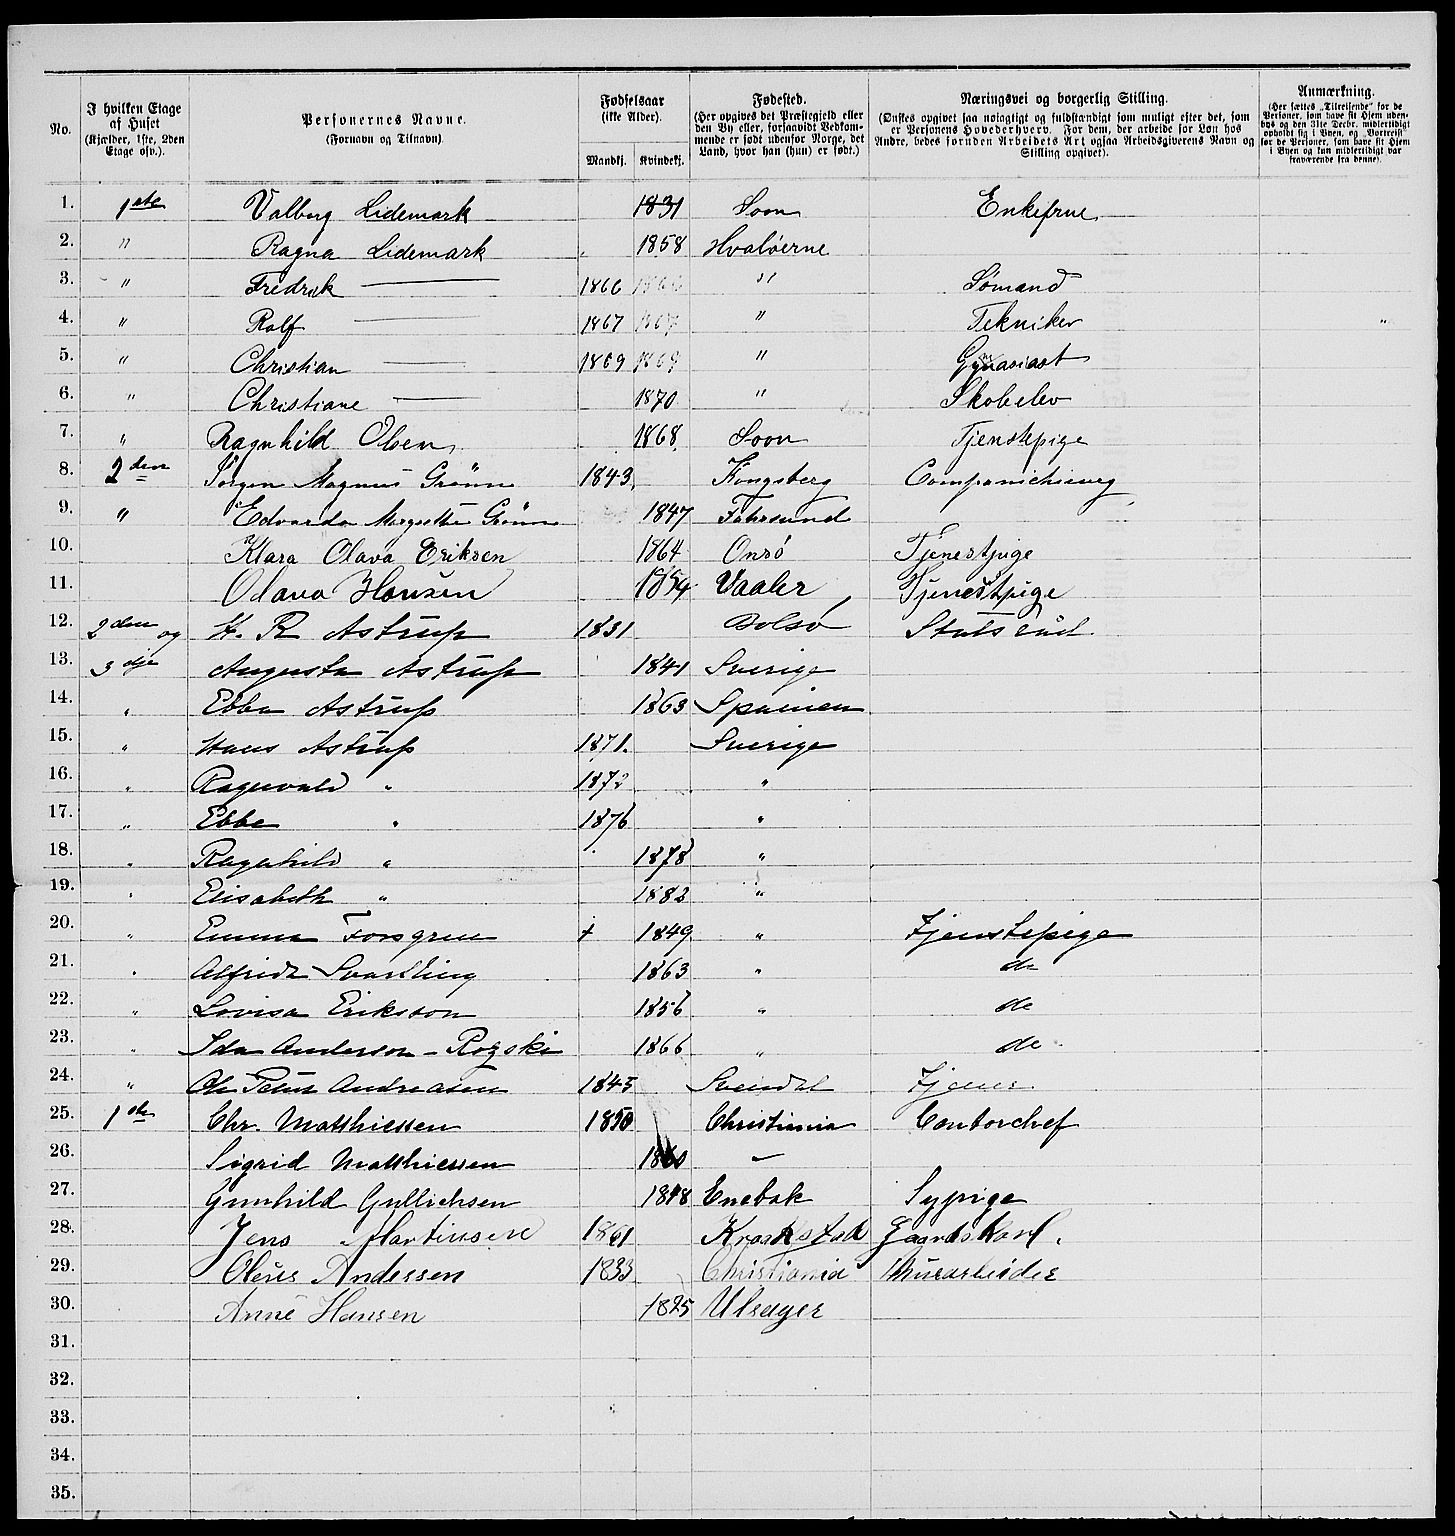 No. | I hvilken Etage af Huset (Kjælder, 1ste, 2den Etage osv.). | Personernes Navne. (Fornavn og Tilnavn). | Fødselsaar (ikke Alder). Mandkj. | Kvindekj. | Fødested. (Her opgives det Præstegjeld eller den By eller, forsaavidt Vedkommende er født udenfor Norge, det Land, hvor han (hun) er født.) | Næringsvei og borgerlig Stilling. (Ønskes opgivet saa nøiagtigt og fuldstændigt som muligt efter det, som er Personens Hovederhverv. For dem, der arbeide for Løn hos Andre, bedes foruden Arbeidets Art ogsaa Arbeidsgiverens Navn og Stilling opgivet). | Anmærkning. (Her sættes „Tilreisende" for de Personer, som have sit Hjem udenbys og den 31te Decbr. midlertidigt opholdt sig i Byen, og „Bortreist" for de Personer, som have sit Hjem i Byen og kun midlertidigt var fraværende fra denne).
1. 1ste Valborg Lidemark 1831 Soon Enkefrue
2. " Ragna Lidemark 1858 Hvaløerne
3. " Fredrik — 1866 1866 " Sømand
4. " Rolf — 1867 1867 " Tekniker
5. " Christian — 1869 1869 " Gymnasiast
6. " Christiane — 1870 " Skoleelev
7. " Ragnhild Olsen 1868 Soon Tjenstepige
8. 2den Jørgen Magnus Grønn 1843 Kongsberg
9. " Edvarda Margrethe Grønn 1847 Fahrsund
10. Klara Olava Eriksen 1864 Onsø Tjenestpige
11. Olava Hansen 1854 Vaaler Tjenestpige
12. 2den og H. R. Astrup 1831 Bolsø Statsraad
13. 3dje Augusta Astrup 1841 Sverige
14. " Ebba Astrup 1863 Spanien
15. " Hans Astrup 1871. Sverige
16. " Ragnvald " 1872 "
17. " Ebbe " 1876 "
18. " Ragnhild " 1878 "
19. " Elisabeth " 1882 "
20. " Emma Forsgren + 1849 " Tjenstepige
21. " Alfrida Svartling 1863 " do
22. " Lovisa Eriksson 1856 " do
23. " Ida Anderson - 1866 " do
24. " Ole Andreasen 1843 Tjener
25. 1ste Chr. Matthiessen 1850 Christiania Contorchef
26. Sigrid Matthiessen 1860 —
27. Gunhild Gulbrichsen 1848 Enebak Sypige
28. Jens Martinsen 1861 Kraakstad Gaardskarl.
29. Oleus Andersen 1833 Christiania Murarbeider
30. Anne Hansen 1825 Ulsager
31.
32.
33.
34.
35.